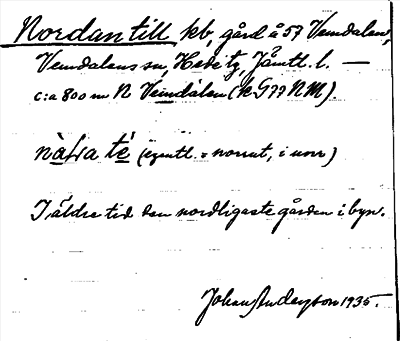 Nordantill, kb, gård å 57 Vemdalen,
Vemdalens sn, Hede tg, Jämtl. l. —
c:a 800 m N Vemdalen (k G77 N.M.)
nàṣ̌ra té (egentl. = norrut, i norr)
I äldre tid den nordligaste gården i byn.
Johan Anderson 1935.